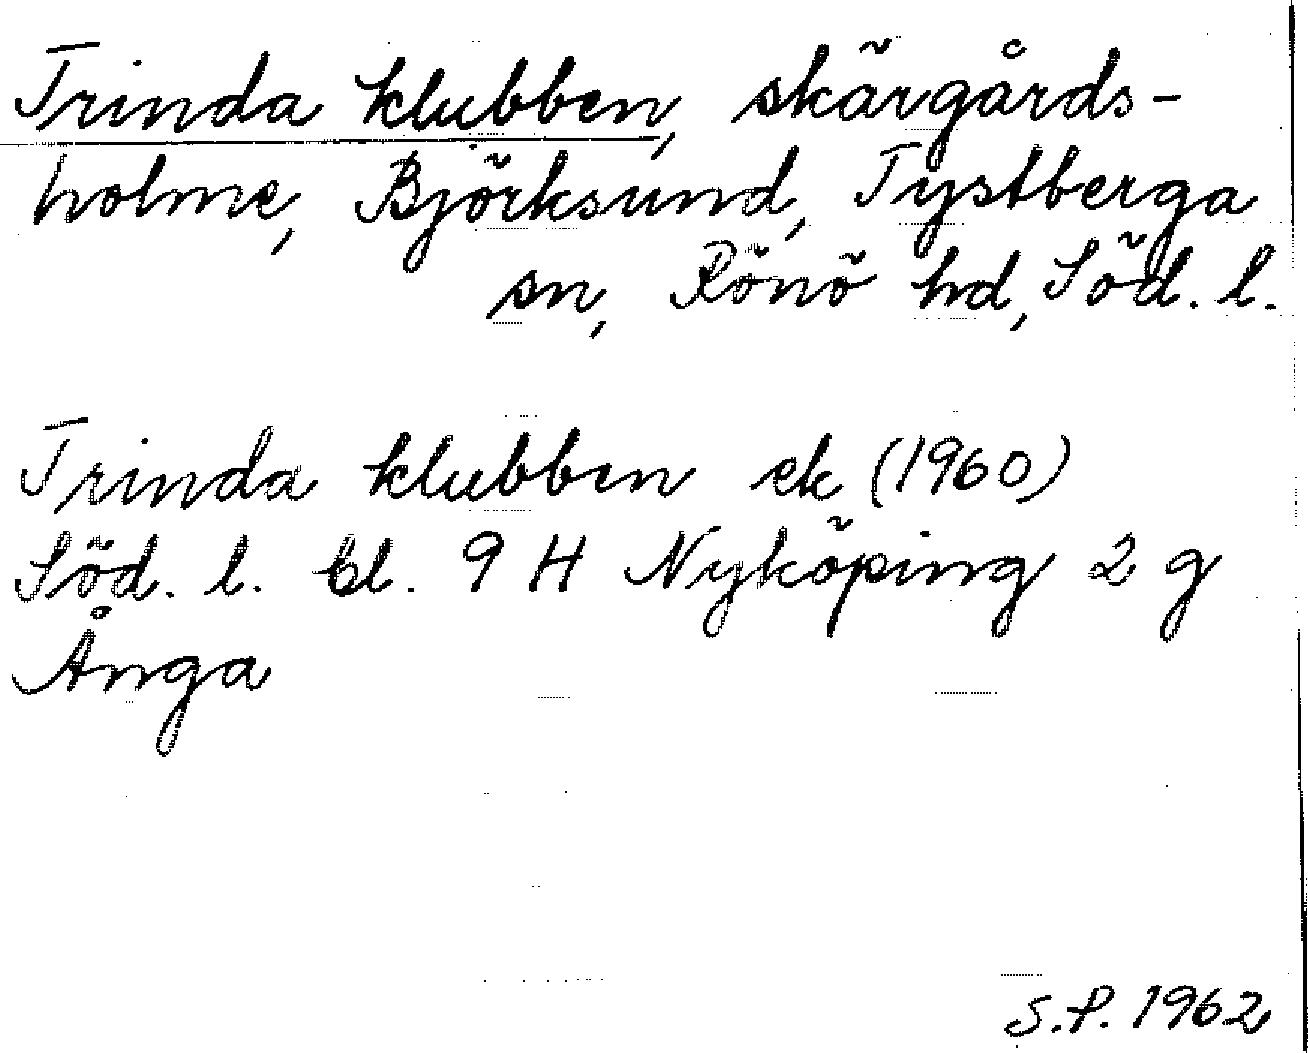 Trinda klubben, skärgårds-
holme, Björksund, Tystberga
sn, Rönö hd, Söd. l.
Trinda klubben ek (1960)
Söd. l. bl. 9 H Nyköping 2 g
Ånga
S.P. 1962